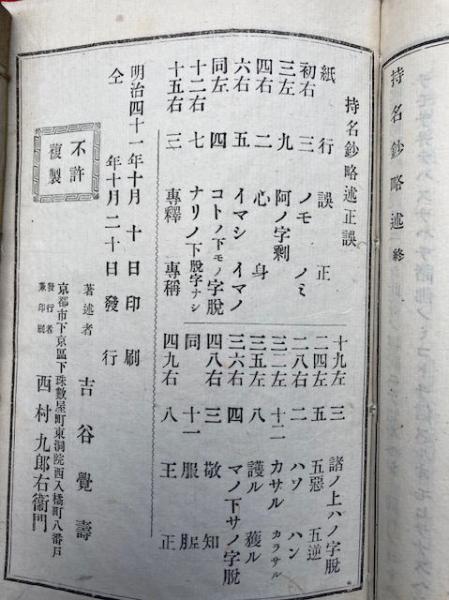 持名鈔略述正誤
紙 行 誤 正
初右 三 ノモ ノミ
三左 九 阿ノ字剩
四右 二 心 身
六右 五 イマシ イマノ
同左 四 コトノ下モノ字脫
十二右 七 ナリノ下脫字ナシ
十五右 三 專釋 專稱
十九左 三 諸ノ上ハノ字脫
二四左 五 五惡 五逆
二八右 二 ハソ ハン
三二左 十二 カサル カラサル
三五左 八 護ル 獲ル
三六右 四 マノ下サノ字脫
四八右 三 敬 知
同 十一 服
四九右 八 王 正
明治四十一年十月十日印刷
仝 年十月二十日發行
不許複製
著述者 吉谷覺壽
京都市下京區下珠數屋町東洞院西入橘町八番戶
發行者兼印刷
西村九郎右衞門
持名鈔略述 終